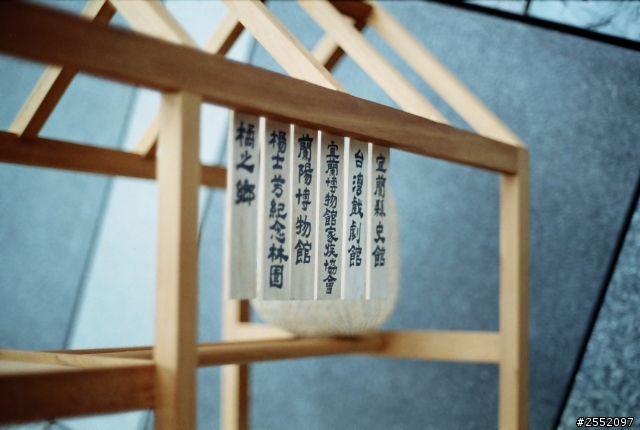 宜蘭縣史館
台灣戲劇館
宜蘭博物館家族協會
蘭陽博物館
楊士芳紀念林園
橘之鄉
#2552097